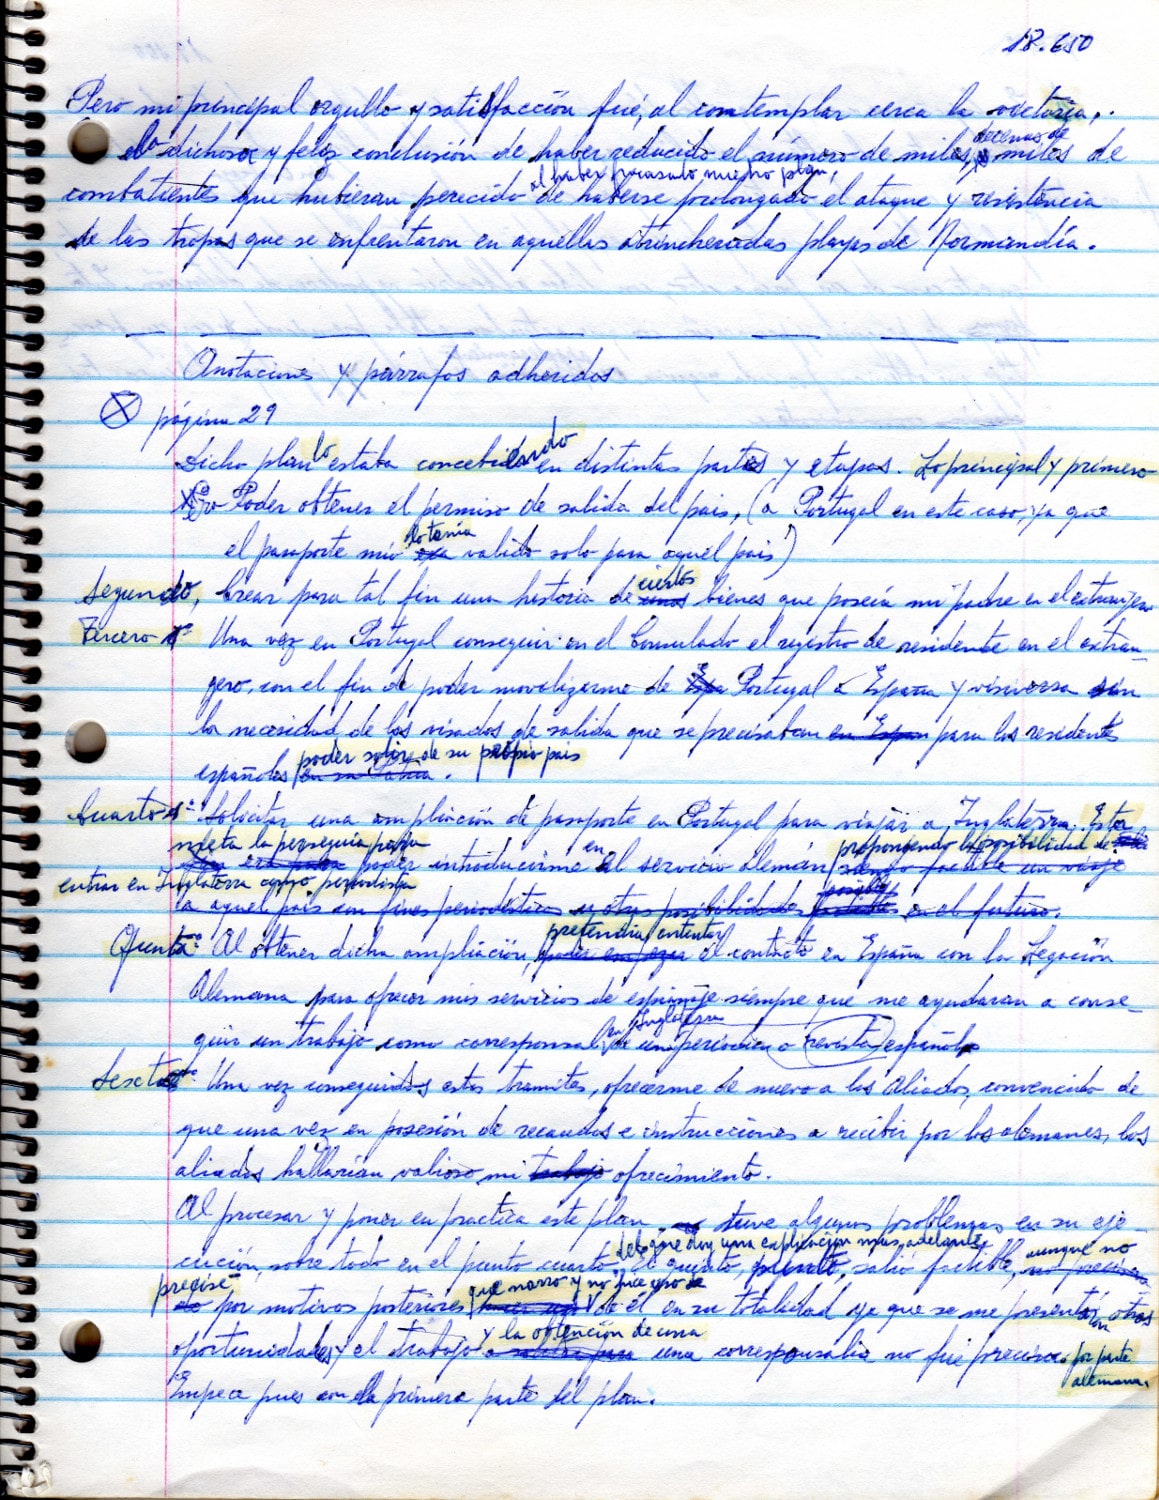 18.650
Pero mi principal orgullo y satisfacción fué, al contemplar cerca la victoria,
lo dichoso y feliz conclusión de haber reducido el número de miles, decenas de miles de
al haber fracasado nuestro plan,
combatientes que hubieran perecido de haberse prolongado el ataque y resistencia
de las tropas que se enfrentaron en aquellas atrincheradas playas de Normandía.
Anotaciones y párrafos adheridos
página 29
Dicho plan lo estaba concebiendo en distintas partes y etapas. Lo principal y primero
Poder obtener el permiso de salida del pais, (a Portugal en este caso, ya que
el pasaporte mio lo tenia valido solo para aquel pais)
Segundo, Crear para tal fin una historia de ciertos bienes que poseía mi padre en el extranjero
Tercero Una vez en Portugal conseguir en el Consulado el registro de residente en el extran-
gero, con el fin de poder movelizarme de Portugal a España y viciversa sin
la necesidad de los visados de salida que se precisaban en Espan para los residentes
españoles poder salir de su propio pais
en su Patria.
Cuarto Solicitar una ampliación de pasaporte en Portugal para viajar a Inglaterra. Esta
meta la perseguia para proponendo la posibilidad de
poder introducirme en el servicio Alemán siendo factible un viaje
entrar en Inglaterra como periodista
a aquel pais con fines periodisticos y otras posibilidades en el futuro.
pretendia intentar
Quinta Al obtener dicha ampliación, poder empezar el contacto en España con la Legación
Alemana para ofrecer mis servicios de espionaje siempre que me ayudaran a conse-
Inglaterra
guir un trabajo como corresponsal en un periodico o revista española
Sexta Una vez conseguidos estos tramites, ofrecerme de nuevo a los Aliados, convencido de
que una vez en posesión de recaudos e instrucciones a recibir por los alemanes, los
aliados hallarían valioso mi trabajo ofrecimiento.
Al procesar y poner en practica este plan tuve algunos problemas en su eje-
del que doy una explicación mas adelante
cución, sobre todo en el punto cuarto, El quinto, salió factible, aunque no
precisé que narro y no hice uso de
por motivos posteriores de él en su totalidad ya que se me presentarón otras
y la obtención de una
oportunidades y el trabajo una corresponsalia no fué precisa. por parte
alemana.
Empecé pues con la primera parte del plan.